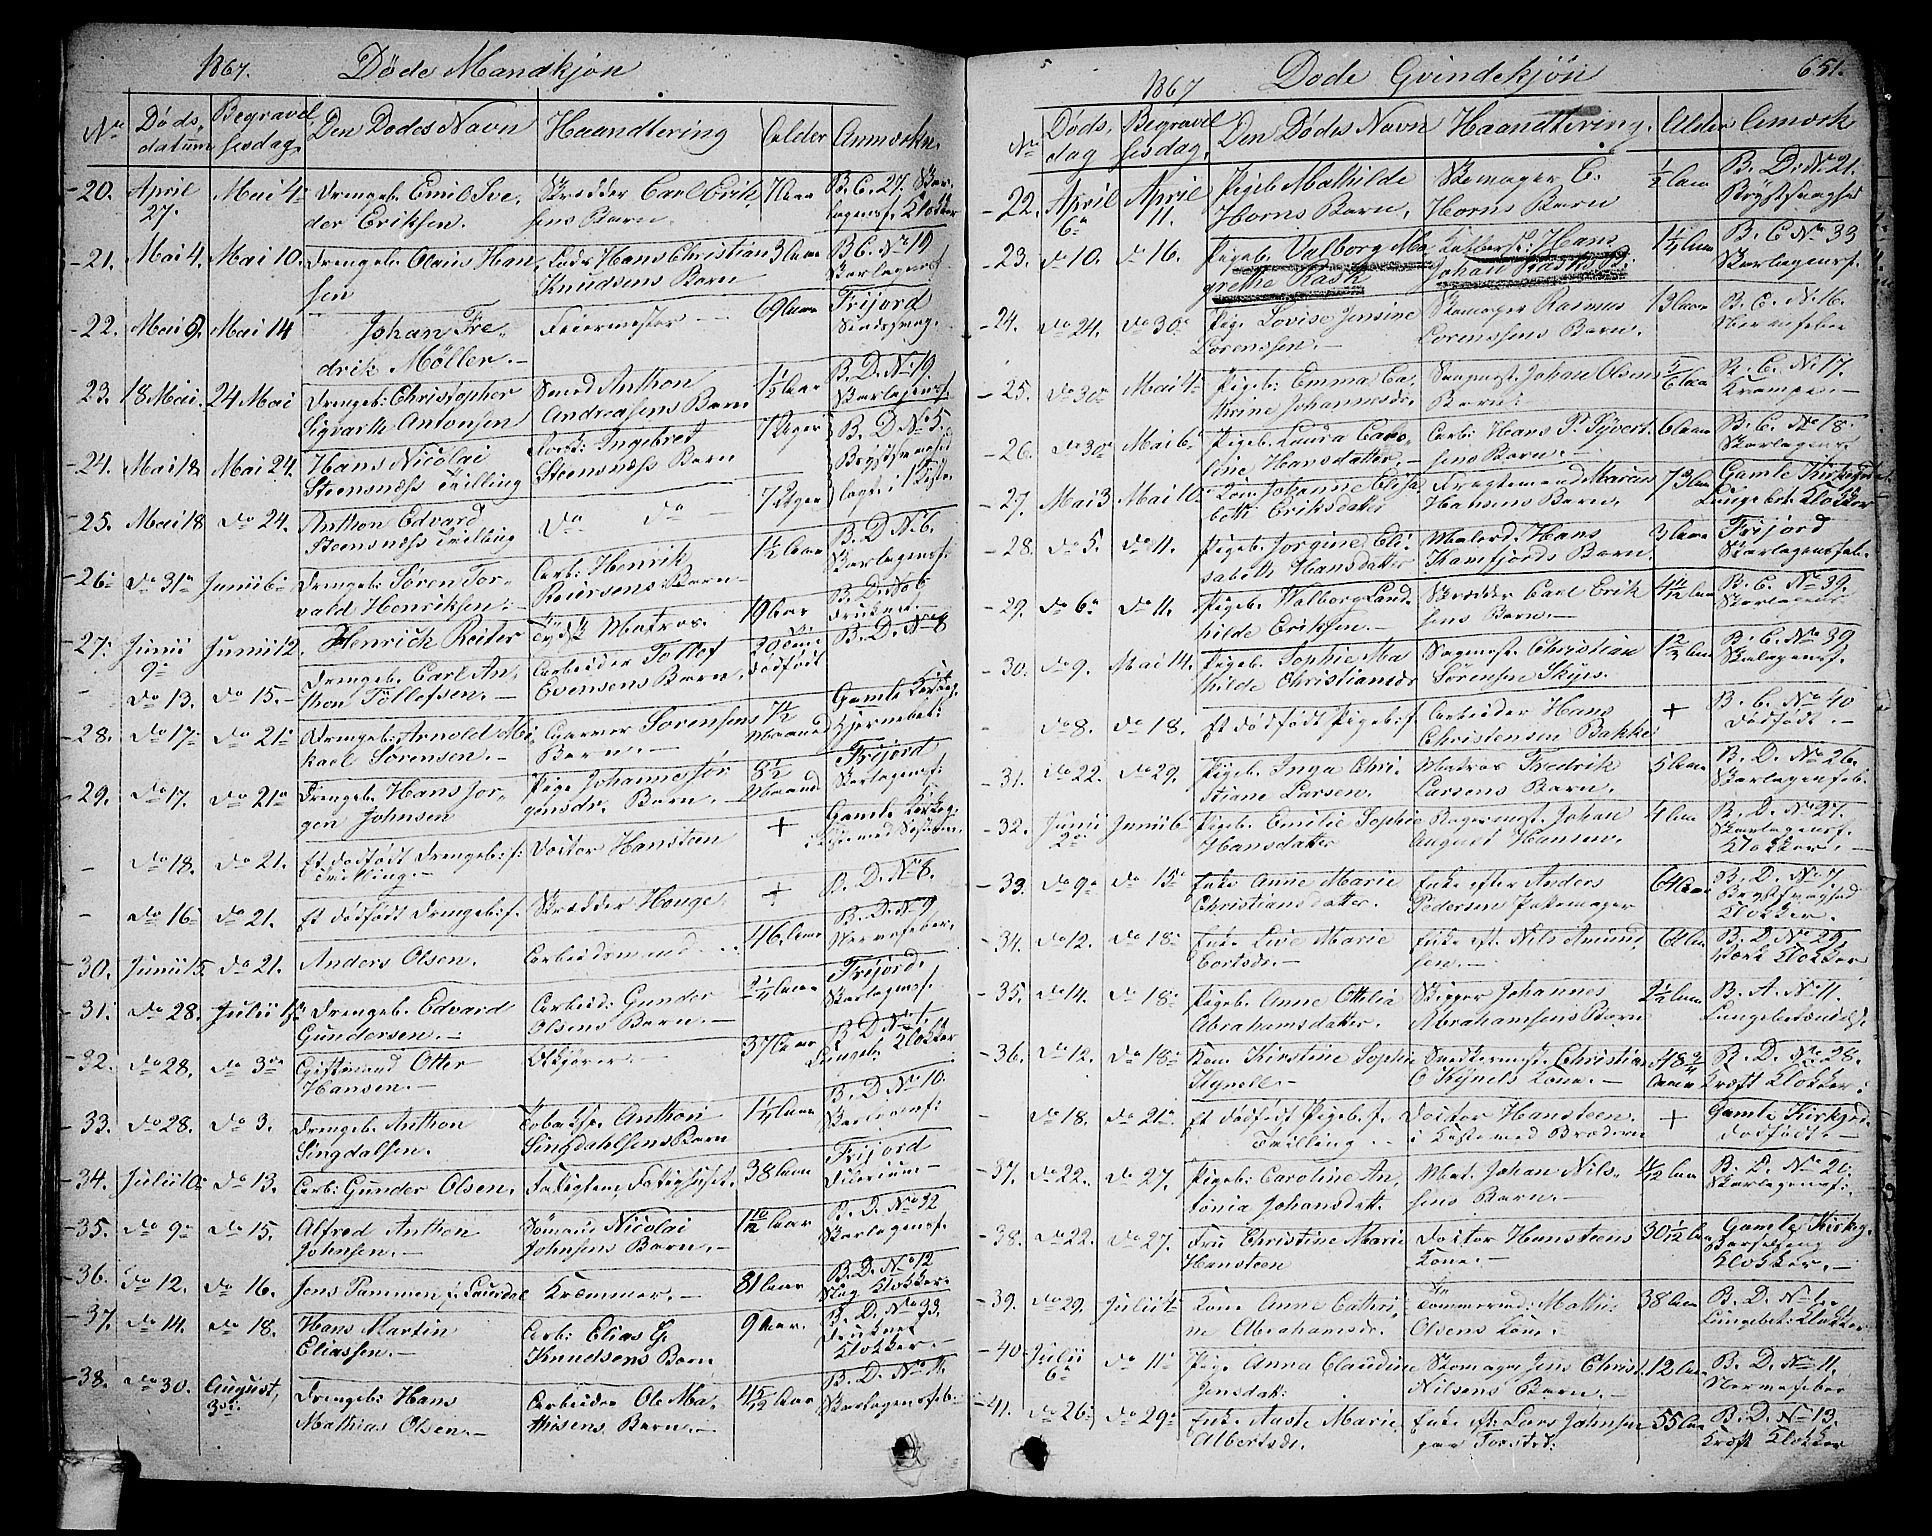 1867. Døde Mandkjøn
No Døds datum Begravelsesdag Den Dødes Navn Haandtering Alder Anmærkn.
20. April 27. Mai 4 Drengeb. Emil Sve
der Eriksen. Skrædder Carl Erik
sens Barn. 7 Aar B. C. 27. Skar
lagensf. Klokker
21. Mai 4. Mai 10. Drengeb. Olaus Han
sen Hans Christian
Knudsens Barn 3 Aar B. C. No 19
Skarlagensf.
22. Mai 9. Mai 14 Johan Fre
drik Möller. Feiermester 69 Aar Frijord
23. 18 Mai. 24 Mai Drengeb: Christopher
Sigvarth Antonsen Smed Anthon
Andreasens Barn 1½ Aar B. D. No 19
Skarlagensf.
24. Mai 18 Mai 24. Hans Nicolai
Steensnæss Tvilling Arb: Ingebret
Steensnæss Barn 7 Uger B. D. No 5.
lagt i 1 Kiste
25. Mai 18 do 24. Anthon Edvard
Steensnæss Tvilling do do 7 Uger
26. do 31 Junii 6 Drengeb. Søren Tor
vald Henriksen. Arb: Henrik
Reiersens Barn 1½ Aar B. D. No 6.
Skarlagensf.
27. Junii 9 Junii 12. Henrich Reiter Tydsk Matros. 19 Aar B. D. No 6
Druknet.
- do 13. do 15. Drengeb. Carl An
thon Tollefsen. Arbeider Tollef
Evensens Barn. dødfødt B. D. No 8
28. do 17. do 21. Drengeb. Arnold Mi
kael Sørensen. Sørensens
Barn. Maaned Gamle Kirkeg.
29. do 17. do 21. Drengeb. Hans Jør
gen Johnsen Pige Johanne Jør
gensdr. Barn. 8½
Maaned Frijord
Skarlagensf.
- do 18. do 21. Et dødfødt Drengeb:
Tvilling. Doctor Hansteen + Gamle Kirkeg
- do 16. do 21. Et dødfødt Drengeb. Skrædder Houge. + B. D. No 8.
30. Junii 15. do 21. Anders Olsen. Arbeidsmand 46 Aar B. D. No 9
Nervefeber.
31. do 28. Julii 1 Drengeb. Edvard
Gundersen. Arbeid: Gunder
Olsens Barn. 2¼ Aar Frijord.
Skarlagensf.
32. do 28. do 3 Giftmand Otter
Hansen. 37 Aar B. D. No 1.
Lungeb. Klokker
33. do 28. do 3. Drengeb. Anthon
Singdalsen. Anthon
Singdahlsens Barn 1¼ Aar B. D. No 10.
34. Julii 10. do 13. Arb: Gunder Olsen. Fattiglem, Fattighuset. 38 Aar Frijord
35. do 9. do 15. Alfred Anthon
Johnsen. Sömand Nicolai
Johnsens Barn. 1 10/12 Aar B. D. No 32
Skarlagensf.
36. do 12. do 16. Jens Kræmmer. 81 Aar B. D. No 12
Slag Klokker.
37. do 14. do 18. Hans Martin
Eliassen. Arb: Elias G.
Knudsens Barn 9 Aar. B. D. No 33.
Druknet
Klokker.
38. do 30. August, 3 Drengeb: Hans
Mathias Olsen. Arbeider Ole Ma
thisens Barn. 4 5/12 Aar B. D. No 11.
Skarlagensfeb.
1867 Døde Qvindekjön 651.
No Døds dag Begravelsesdag Den Dødes Navn Haandtering. Alder Anmærk
22. April 6 April 11. Pigeb Mathilde
Horns Barn. Skomager C.
Horns Barn ½ Aar B. D. No 21.
Brystsvaghed
23. do 10. do 16. Pigeb. Valborg Ma
grethe Rask Hans
Johan Rasks B. 1¼ Aar B. C No 33
Skarlagensf.
24. do 24. do 30. Pige. Lovise Jensine
Lorenssen. Skomager Rasmus
Lorenssens Barn. 13 Aar B. C. No 16.
Nervefeber
25. do 30 Mai 4 Pigeb: Emma Ca
thrine Johannesdr. Johan Olsens
Barn. 5/6 Aar B. C. No 17.
Krampe
26. do 30 Mai 6 Pigeb. Laura Caro
line Hansdatter. Arb: Hans P. Syvert
sens Barn. 6 Aar B. C. No 18.
Skarlagensf.
27. Mai 3 Mai 10 Kone Johanne Elisa
beth Eriksdatter Fragtemand Marcus
Hansens Barn. 73 Aar Gamle Kirkegd
Lungebet. Klokker
28. do 5. do 11. Pigeb. Jorgine Eli
sabeth Hansdatter Hans
Kamfjords Barn. 3 Aar Frijord
Skarlagensfeb.
29. do 6 do 11. Pigeb. Valborg Land
hilde Eriksen. Skrædder Carl Erik
sens Barn. 4 11/12 Aar B. C. No 39.
30. do 9. Mai 14. Pigeb. Sophie Ma
thilde Christiansdr Christian
Sørensen 1 2/3 Aar B. C. No 39
Skarlagensf.
- do 8. do 18. Et dødfødt Pigeb: Arbeider Hans
Christensen Bakke + B. C. No 40
dødfødt.
31. do 22. do 29. Pigeb. Inga Chri
stiane Larsen. Matros Fredrik
Larsens Barn. 5 Aar B. D. No 26.
Skarlagensfeb.
32. Junii 2 Junii 6 Pigeb. Emilie Sophie
Hansdatter Johan
August Hansen. 4 Aar B. D. No 27.
Skarlagensf.
Klokker.
33. do 9. do 15 Enke Anne Marie
Christiansdatter. Enke efter Anders
Pedersen 64 Aar B. D. No 7
Brystsvaghed
Klokker.
34. do 12. do 18 Enke Live Marie
Enke eft. Nils Amund
sen. 64 Aar B. D. No 29.
Værk Klokker
35. do 14. do 18 Pigeb. Anne Ottilia
Abrahamsdatter. Skipper Johannes
Abrahamsens Barn 2¼ Aar B. A. No 11.
Lungebetændelse.
36. do 12. do 18 Kone Kirstine Sophie
Kynell. Snedkermest. Christian
O Kynels Kone. 48 Aar B. D. No 28.
Kræft Klokker
- do 18. do 21 Et dødfødt Pigeb.
Tvilling Doctor Hansteen.
i Kiste med Broderen + Gamle Kirkgd
dødfødt.
37. do 22. do 27. Pigeb: Caroline An
tonia Johansdatt. Mat. Johan Nils
sens Barn. 11/12 Aar B. D. No 20.
Skarlagensf.
38. do 22. do 27. Fru Christine Marie
Hansteen Doctor Hansteens
Kone. 30 1/12 Aar Gamle Kirkeg.
Barselseng
Klokker.
39. do 29. Julii 4 Kone Anne Cathri
ne Abrahamsdr. Tømmermd: Mathis
Olsens Kone. 38 Aar B. D. No 1.
Lungebet: Klokker
40. Julii 6 do 11 Pige Anna Claudine
Jensdatt. Skomager Jens Christ.
Nilsens Barn. 12 Aar B. D. No 11.
Nervefeber
41. do 26 do 29 Enke Aaste Marie
Albertsdr. Enke eft: Lars Johnsen
paa Torsted. 55 Aar B. D. No 13.
Kræft Klokker